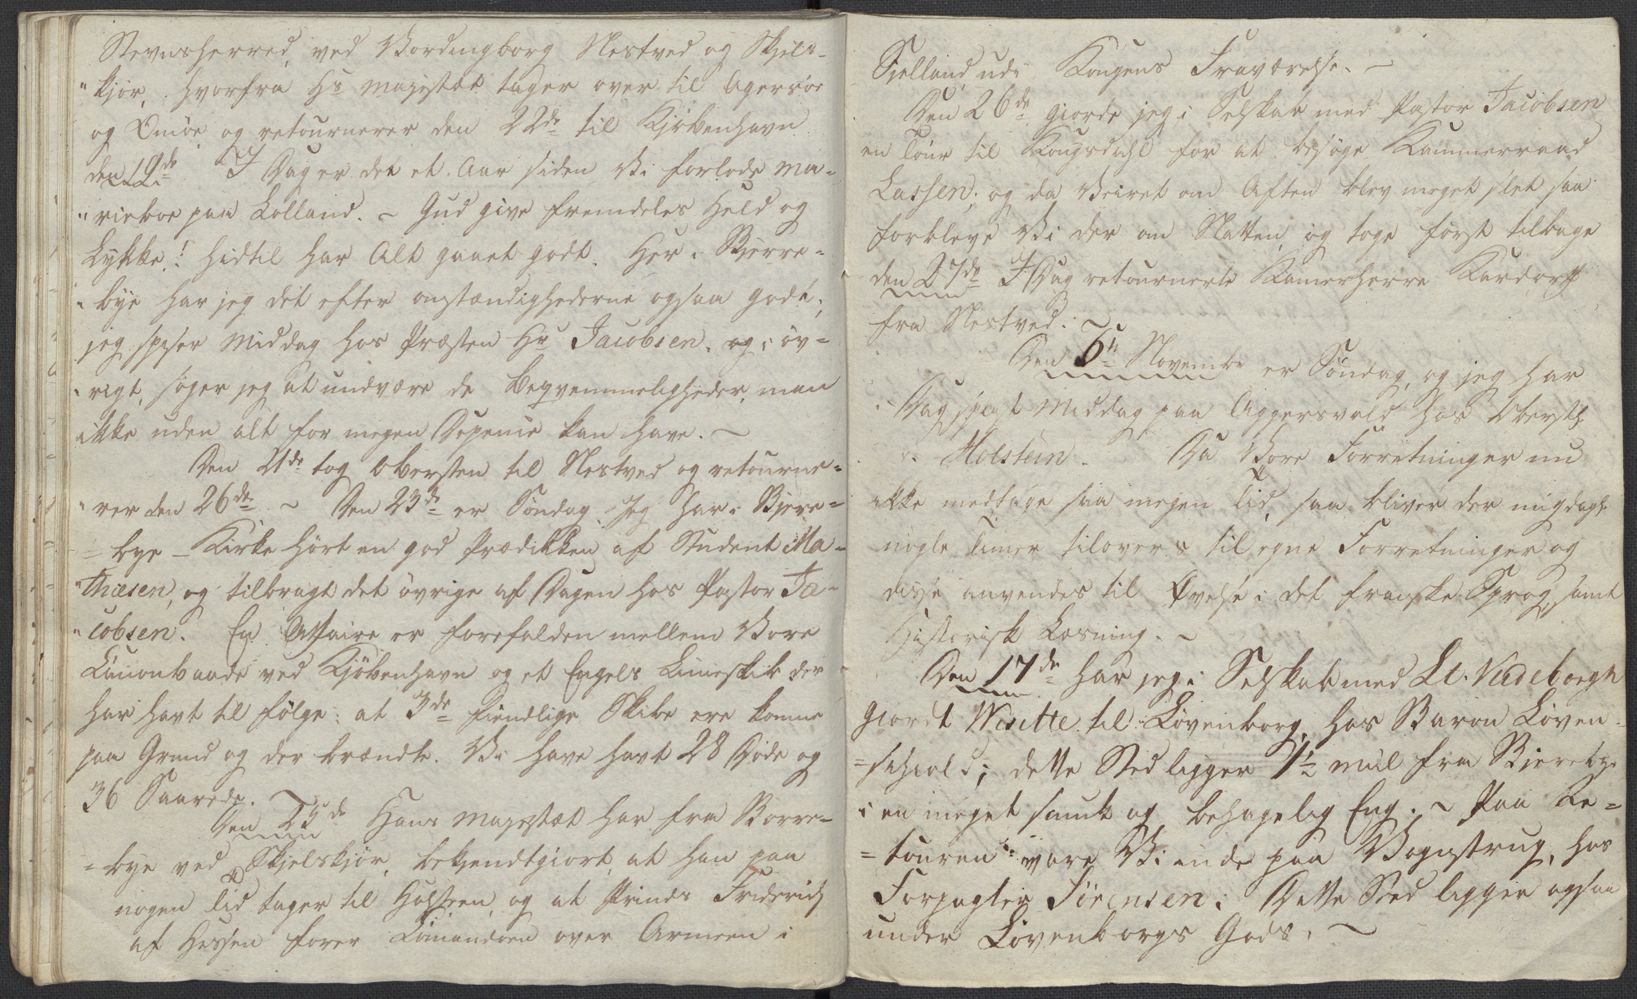 Stevnsherred, ved Vordingborg Nestved og Skjels-
"kjør, hvorfra Hs Majestæt tager over til Agersøe
og Omøe og retournerer den 22de til Kjöbenhavn
den 19de. I Dag er det et Aar siden Vi forlode Ma-
"rieboe paa Lolland. ~ Gud give fremdeles Held og
Lykke! hidtil har Alt gaaet godt. Her i Bjerre-
"bye har jeg det efter omstændighederne ogsaa godt,
jeg spiser Middag hos Præsten Hr Jacobsen, og i öv-
"rigt, søger jeg at undvære de beqvemmeligheder, man
ikke uden alt for megen Depence kan have. ~
Den 21de tog Obersten til Nestved og retourne-
"rer den 26de ~ Den 23de er Søndag. Jeg har i Bjerre-
=bye Kirke hørt en god Prædikken af Student Ma-
"thiesen, og tilbragt det øvrige af Dagen hos Pastor Ja-
"cobsen. En Affaire er forefalden mellem Vore
Canonbaade ved Kjöbenhavn og et Engelsk Linieskib der
har havt til følge: at 3de fiendlige Skibe ere komne
paa Grund og der brændte. Vi have havt 28 Døde og
36 Saarede. ~
Den 25de Hans Majestæt har fra Borre-
=bye ved Skjelskjør, bekjendtgiort, at han paa
nogen Tid tager til Holsteen, og at Prinds Friderich
af Hessen fører Commandoen over Armeen i
Sjelland udi Kongens Fraværelse. ~
Den 26de giorde jeg i Selskab med Pastor Jacobsen
en Tour til Kongsdahl for at besøge Kammerraad
Lassen; og da Veiret om Aften blev meget slet saa
forbleve Vi der om Natten, og toge først tilbage
den 27de I Dag retournerte Kamerherre Kardorff
fra Nestved. ~
Den 6te November er Søndag, og jeg har
i Dag spist Middag paa Aggersvold hos Oberstl.
v. Holstein. Da Vore Forretninger nu
ikke medtage saa megen Tid, saa bliver der mig dagl.
nogle Timer tilovers til egne Forretninger og
disse anvendes til Øvelse i det franske Sprog, samt
Historisk Læsning. ~
Den 17de har jeg i Selskab med Lt. Vedeborgh
giordt Visitte til Lövenborg, hos Baron Löven-
=schiold; dette Sted ligger 1½ Miil fra Bjerebye
i en meget smuk og behagelig Eng. ~ Paa Re-
=touren vare Vi inde paa Vognstrup, hos
Forpagter Sörensen; Dette Sted ligger ogsaa
under Lövenborgs Gods. ~